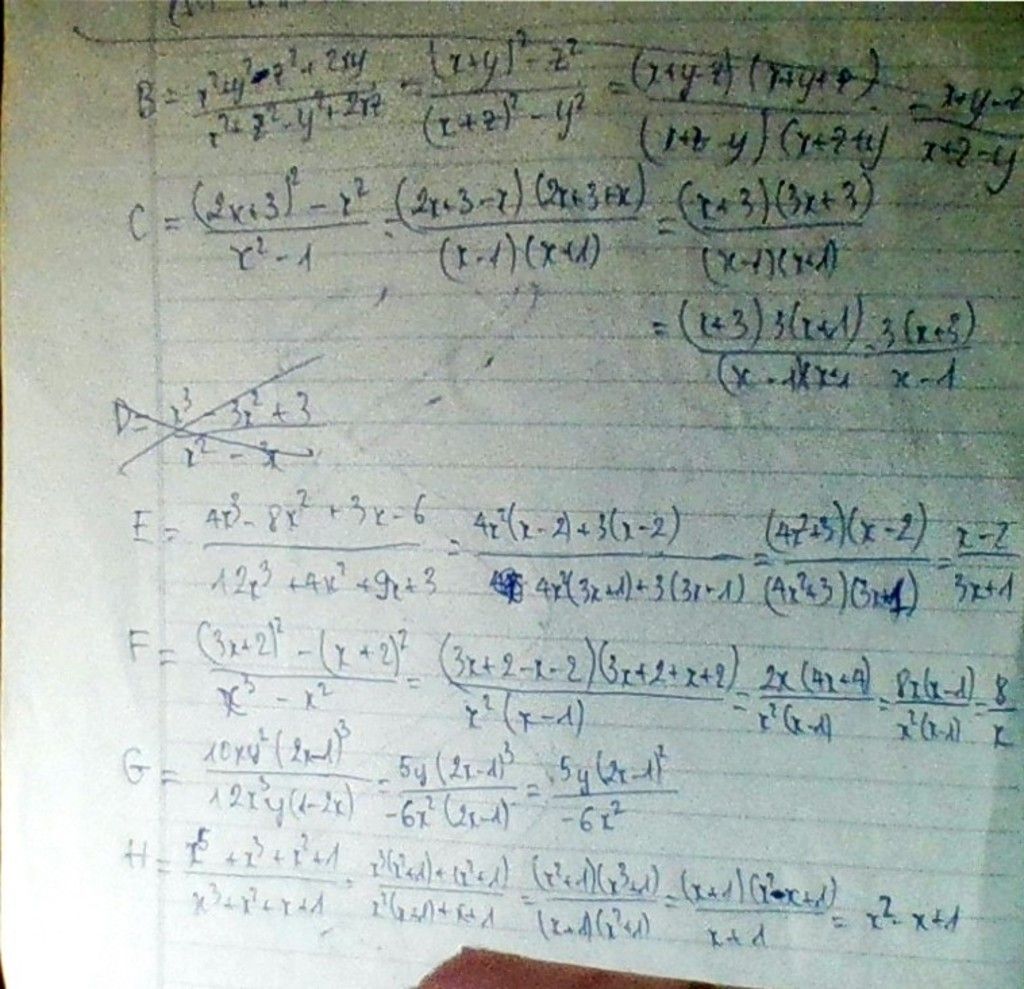 B = (x²+y²-z²+2xy)/(x²+z²-y²+2xz) = ((x+y)²-z²)/((x+z)²-y²) = ((x+y-z)(x+y+z))/((x+z-y)(x+z+y) = (x+y-z)/(x+z-y)
C = ((2x+3)²-x²)/(x²-1) = ((2x+3-x)(2x+3+x))/((x-1)(x+1)) = ((x+3)(3x+3))/((x-1)(x+1))
= ((x+3)3(x+1))/((x-1)(x+1) = 3(x+3)/(x-1)
D = (x³-3x²+3)/(x²-x)
E = (4x³-8x²+3x-6)/(12x³+4x²+9x+3) = (4x²(x-2)+3(x-2))/(4x²(3x+1)+3(3x+1)) = ((4x²+3)(x-2))/((4x²+3)(3x+1)) = (x-2)/(3x+1)
F = ((3x+2)²-(x+2)²)/(x³-x²) = ((3x+2-x-2)(3x+2+x+2))/(x²(x-1)) = (2x(4x+4))/(x²(x-1)) = (8x(x-1))/(x²(x-1)) = 8/x
G = (10xy²(2x-1)³)/(12x³y(1-2x)) = (5y(2x-1)³)/(-6x²(2x-1)) = (5y(2x-1)²)/(-6x²)
H = (x⁵+x³+x²+1)/(x³+x²+x+1) = (x³(x²+1)+(x²+1))/(x²(x+1)+x+1) = ((x²+1)(x³+1))/((x+1)(x²+1)) = ((x+1)(x²-x+1))/(x+1) = x²-x+1